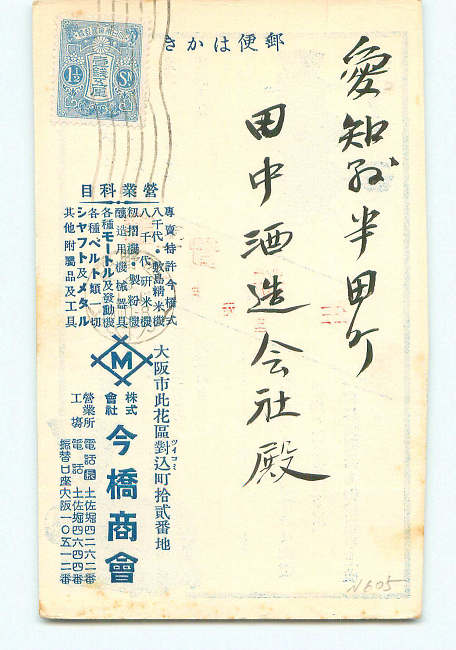 郵便はかき
愛知縣半田町
田中酒造会社殿
壹錢五厘
1½ Sn
營業科目
專賣特許今橋式
八千代・敷島精米機
八千代研米機
籾摺機・製粉機
釀造用機械器具
各種モートル及發動機
各種ベルト類一切
シヤフト及メタル
其他附屬品及工具
M
大阪市此花區對込町拾貳番地
ツイコミ
株式會社
今橋商會
營業所 電話長土佐堀四二六二番
工場 電話土佐堀四六四四番
振替口座大阪一〇五一二番
N605